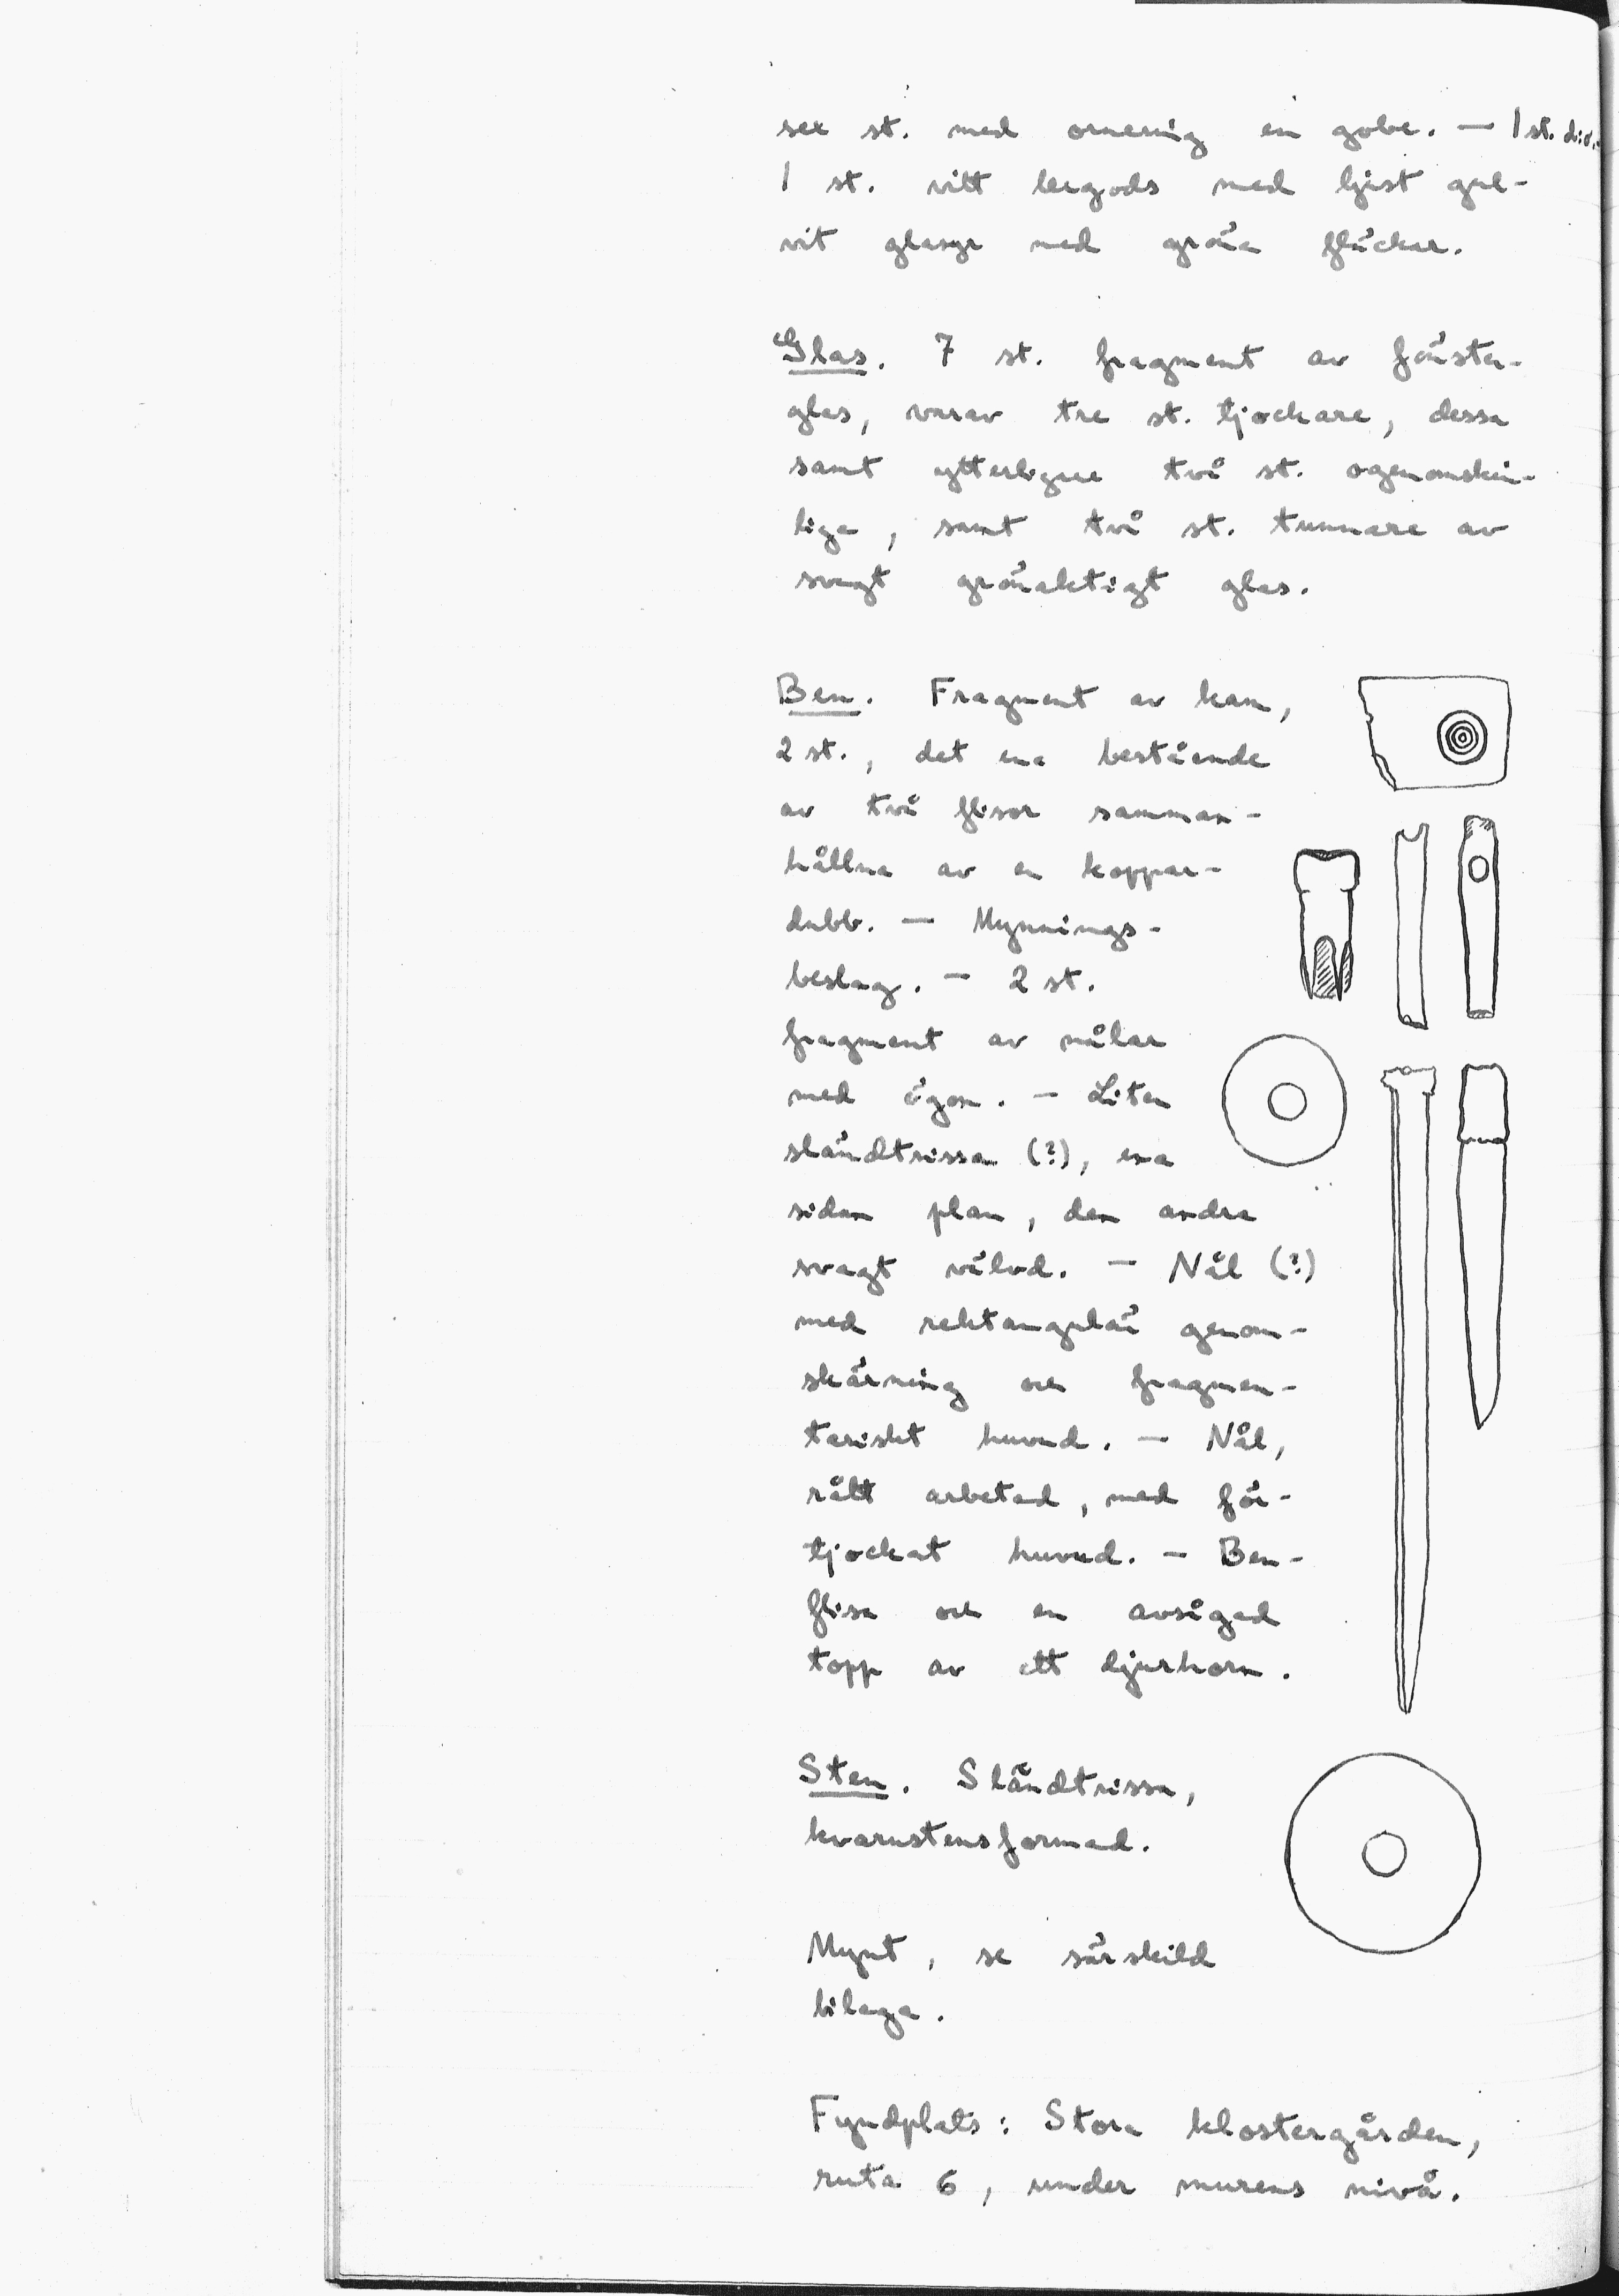 sex st. med ornering en gobe. — 1 st. d:o.
1 st. vitt lergods med ljust gul-
vit glasyr med gröna fläckar.
Glas. 7 st. fragment av fönster-
glas, varav tre st. tjockare, dessa
samt ytterligare två st. ogenomskin-
liga, samt två st. tunnare av
svagt grönaktigt glas.
Ben. Fragment av kam,
2 st., det ena bestående
av två flisor samman-
hållna av en koppar-
dubb. — Mynnings-
beslag. — 2 st.
fragment av nålar
med ögon. — Liten
sländtrissa (?), ena
sidan plan, den andra
svagt välvd. — Nål (?)
med rektangulär genom-
skärning och fragmen-
tariskt huvud. — Nål,
rått arbetad, med för-
tjockat huvud. — Ben-
flisa och en avsågad
topp av ett djurhorn.
Sten. Sländtrissa,
kvarnstensformad.
Mynt, se särskild
bilaga.
Fyndplats: Stora klostergården,
ruta 6, under murens nivå.